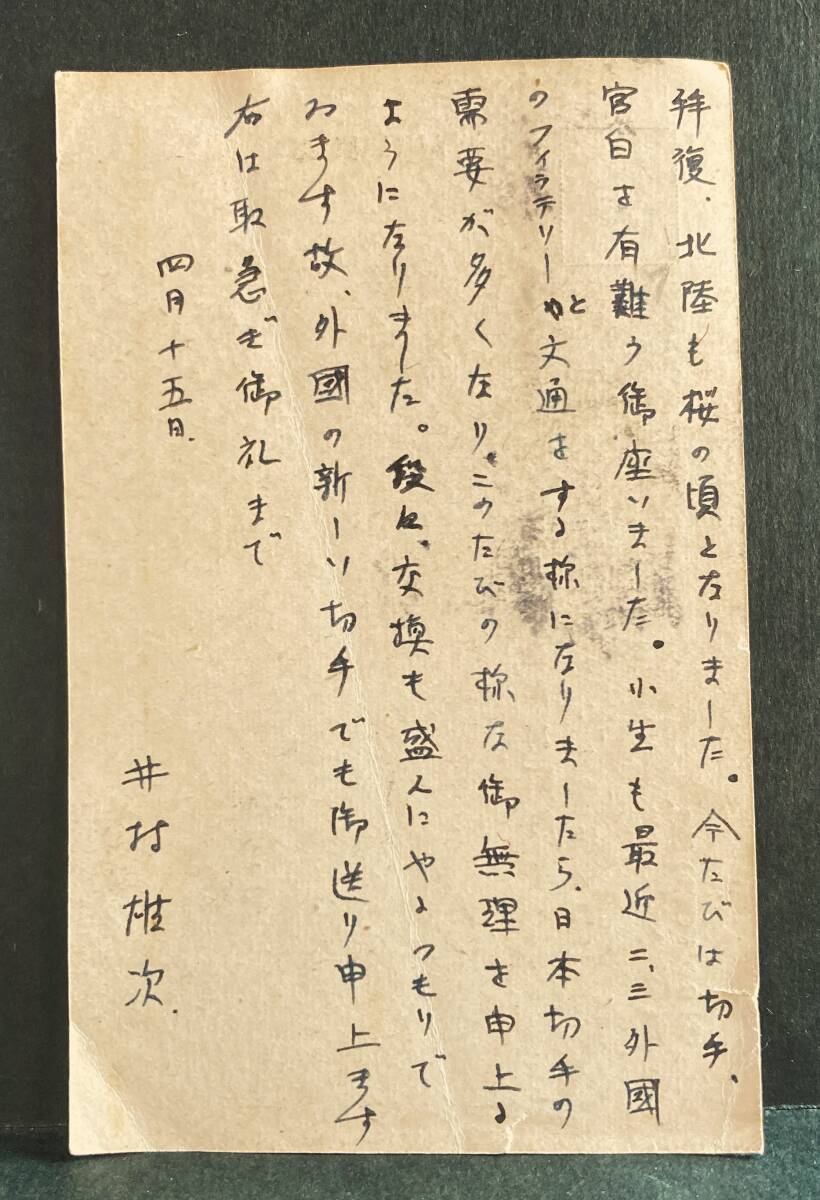 拝復、北陸も桜の頃となりました。今たびは切手、
官白を有難う御座いました。小生も最近二、三外國
のフィラテリーと文通をする様になりましたら、日本切手の
需要が多くなり、このたびの様な御無理を申上る
ようになりました。段々、交換も盛んにやるつもりで
ゐます故、外國の新しい切手でも御送り申上ます
右は取急ぎ御礼まで
四月十五日、
井村雄次、